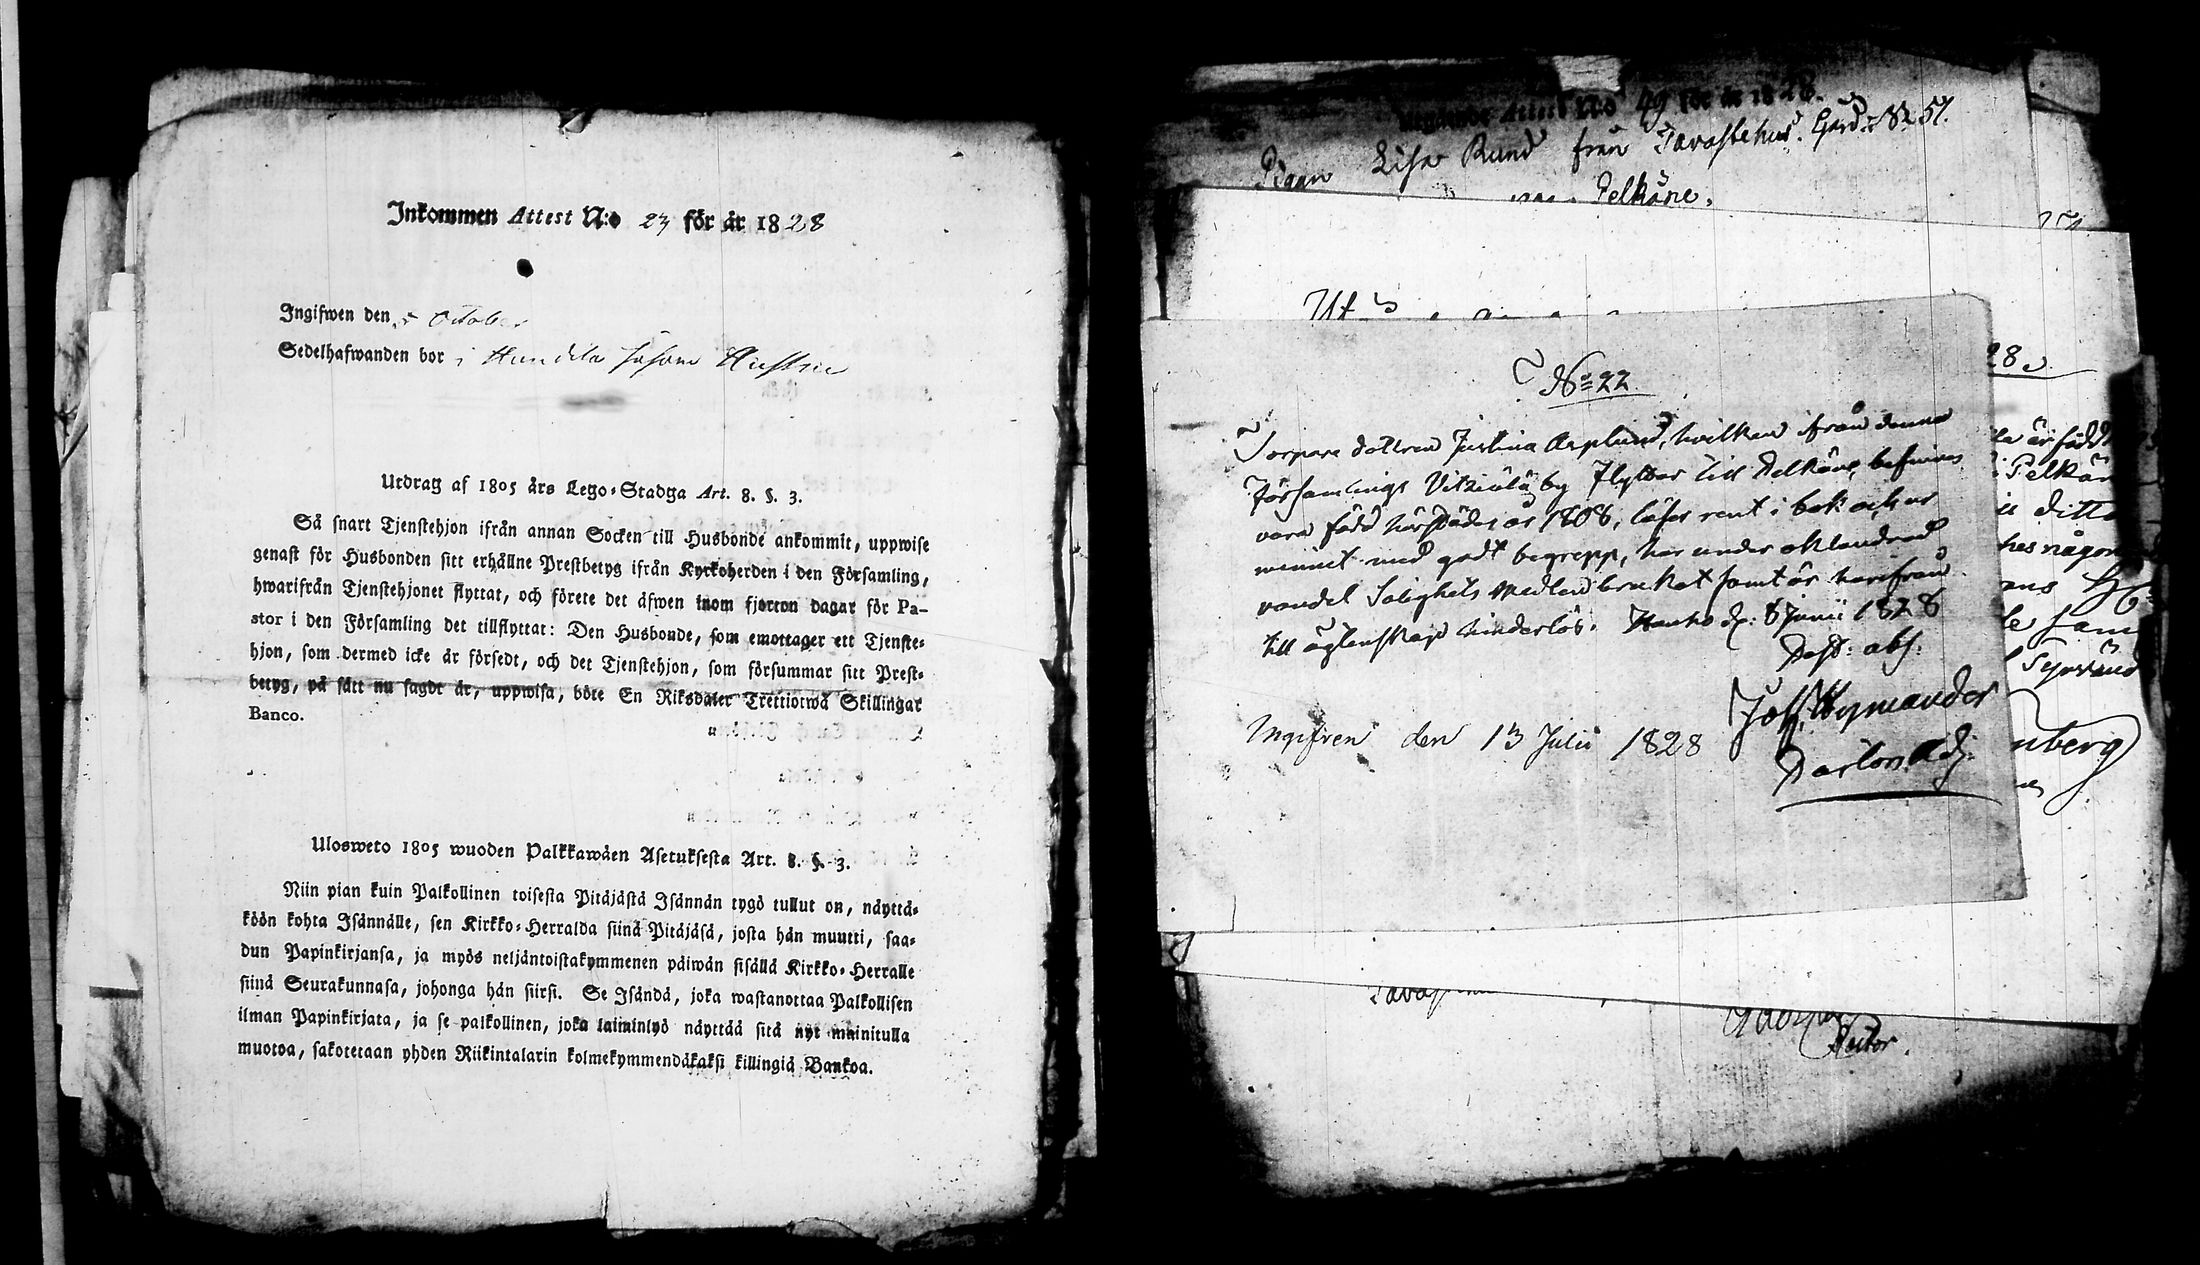 Inkommen Attest N:o 23 för år 1828
Ingifwen den 5 October
Sedelhafwanden bor i Johan
Utdrag af 1805 års Lego-Stadga Art. 8. §. 3.
Så snart Tjenstehjon ifrån annan Socken till Husbonde ankommit, uppwise
genast för Husbonden sitt erhållne Prestbetyg ifrån Kyrkoherden i den Församling,
hwarifrån Tjenstehjonet flyttat, och förete det äfwen inom fjorton dagar för Pa-
stor i den Församling det tillflyttat: Den Husbonde, som emottager ett Tjenste-
hjon, som dermed icke är försedt, och det Tjenstehjon, som försummar sitt Prest-
betyg, på sätt nu sagdt är, uppwisa, böte En Riksdaler Trettiotwå Skillingar
Banco.
Ulosweto 1805 wuoden Palkkawäen Asetuksesta Art. 8. §. 3.
Niin pian kuin Palkollinen toisesta Pitäjästä Isännän tygö tullut on, näyttä-
köön kohta Isännälle, sen Kirkko-Herralda siinä Pitäjäsä, josta hän muutti, saa-
dun Papinkirjansa, ja myös neljäntoistakymmenen päiwän sisällä Kirkko-Herralle
siinä Seurakunnasa, johonga hän siirsi. Se Isändä, joka wastanottaa Palkollisen
ilman Papinkirjata, ja se palkollinen, joka laiminlyö näyttää sitä nyt mainitulla
muotoa, sakotetaan yhden Riikintalarin kolmekymmendäkaksi killingiä Bankoa.
Attest N:o 49 för år 1828.
Pigan Lisa Rund från Tavastehus Gård N:o 51.
Pelkäne.
N:o 22
Torpare dottren Justina Asplund, hvilken ifrån denna
Församlings by flyttar till Pelkäne, befinnes
vara född härstädes år 1808, läser rent i bok och ur
minnet med godt begrepp, har under oklandrad
vandel Salighets medlen brukat samt är härifrån
till ägtenskap hinderlös. Hauho d. 8 Junii 1828
Past: abs:
Ingifven den 13 Julii 1828
Pastors Adj.
28
är född
Pelkän
ditto
någon
berg